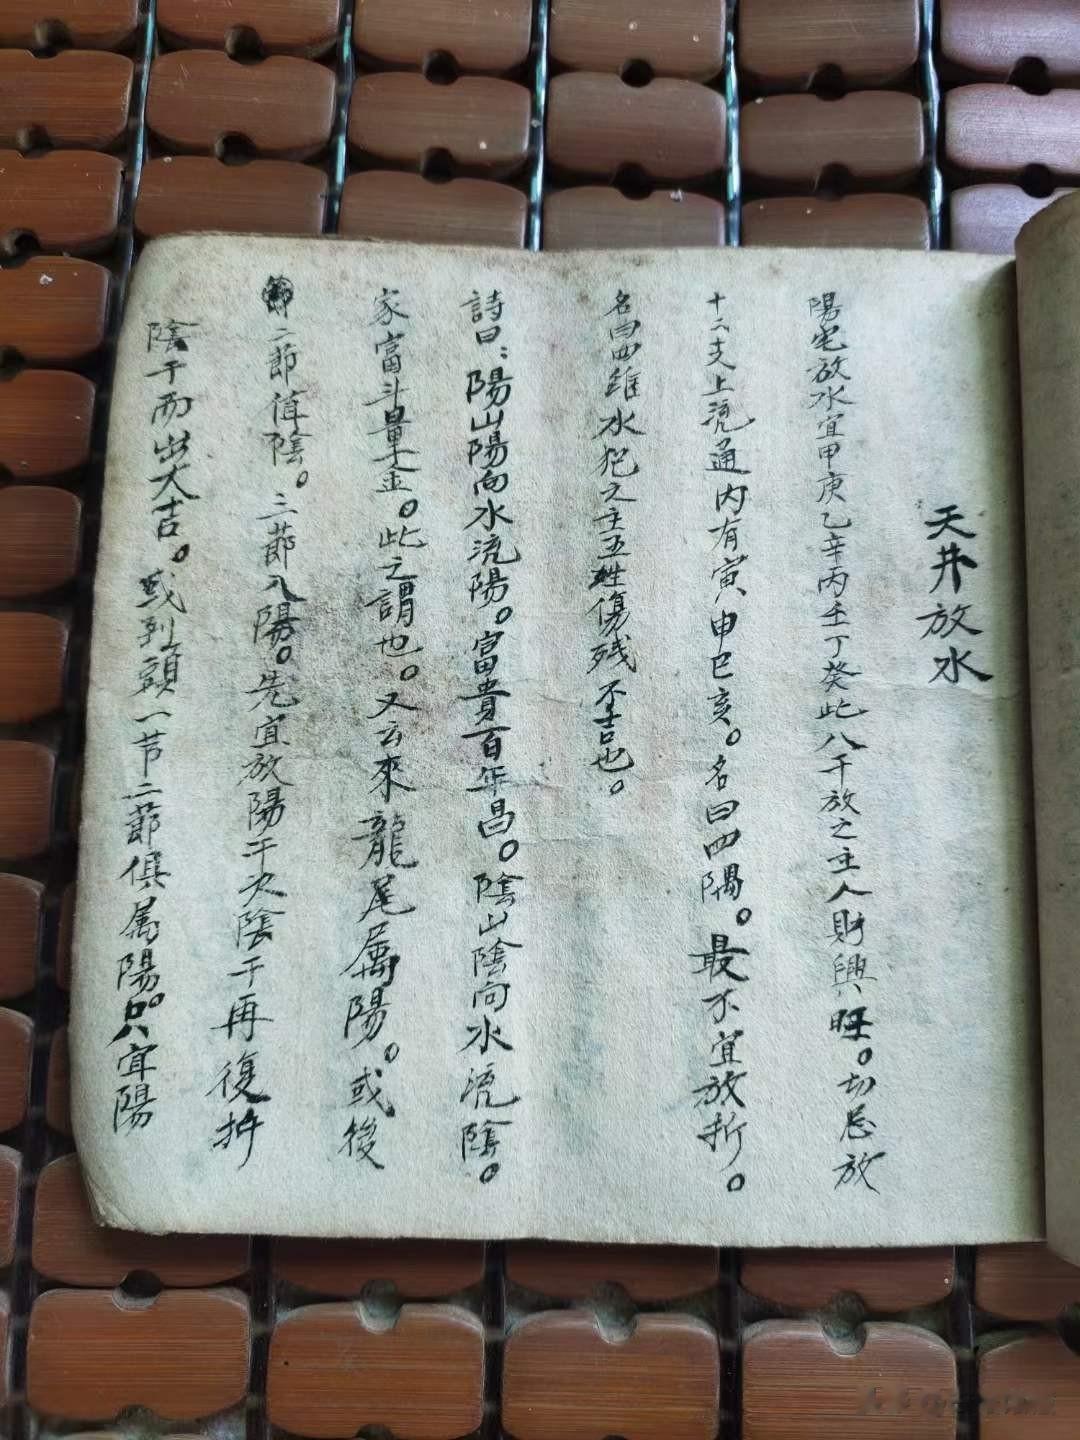 天井放水
陽宅放水宜甲庚乙辛丙壬丁癸此八干放之主人財興旺。切忌放
十二支上流通内有寅申巳亥。名曰四隅。最不宜放折。
名曰四維水犯之主五姓傷残不吉也。
詩曰：陽山陽向水流陽。富貴百年昌。陰山陰向水流陰。
家富斗量金。此之謂也。又云來龍尾属陽。或後
節二節值陰。三節入陽。先宜放陽干次陰干再復折
陰干而出大吉。或到頭一节二節俱属陽。只宜陽